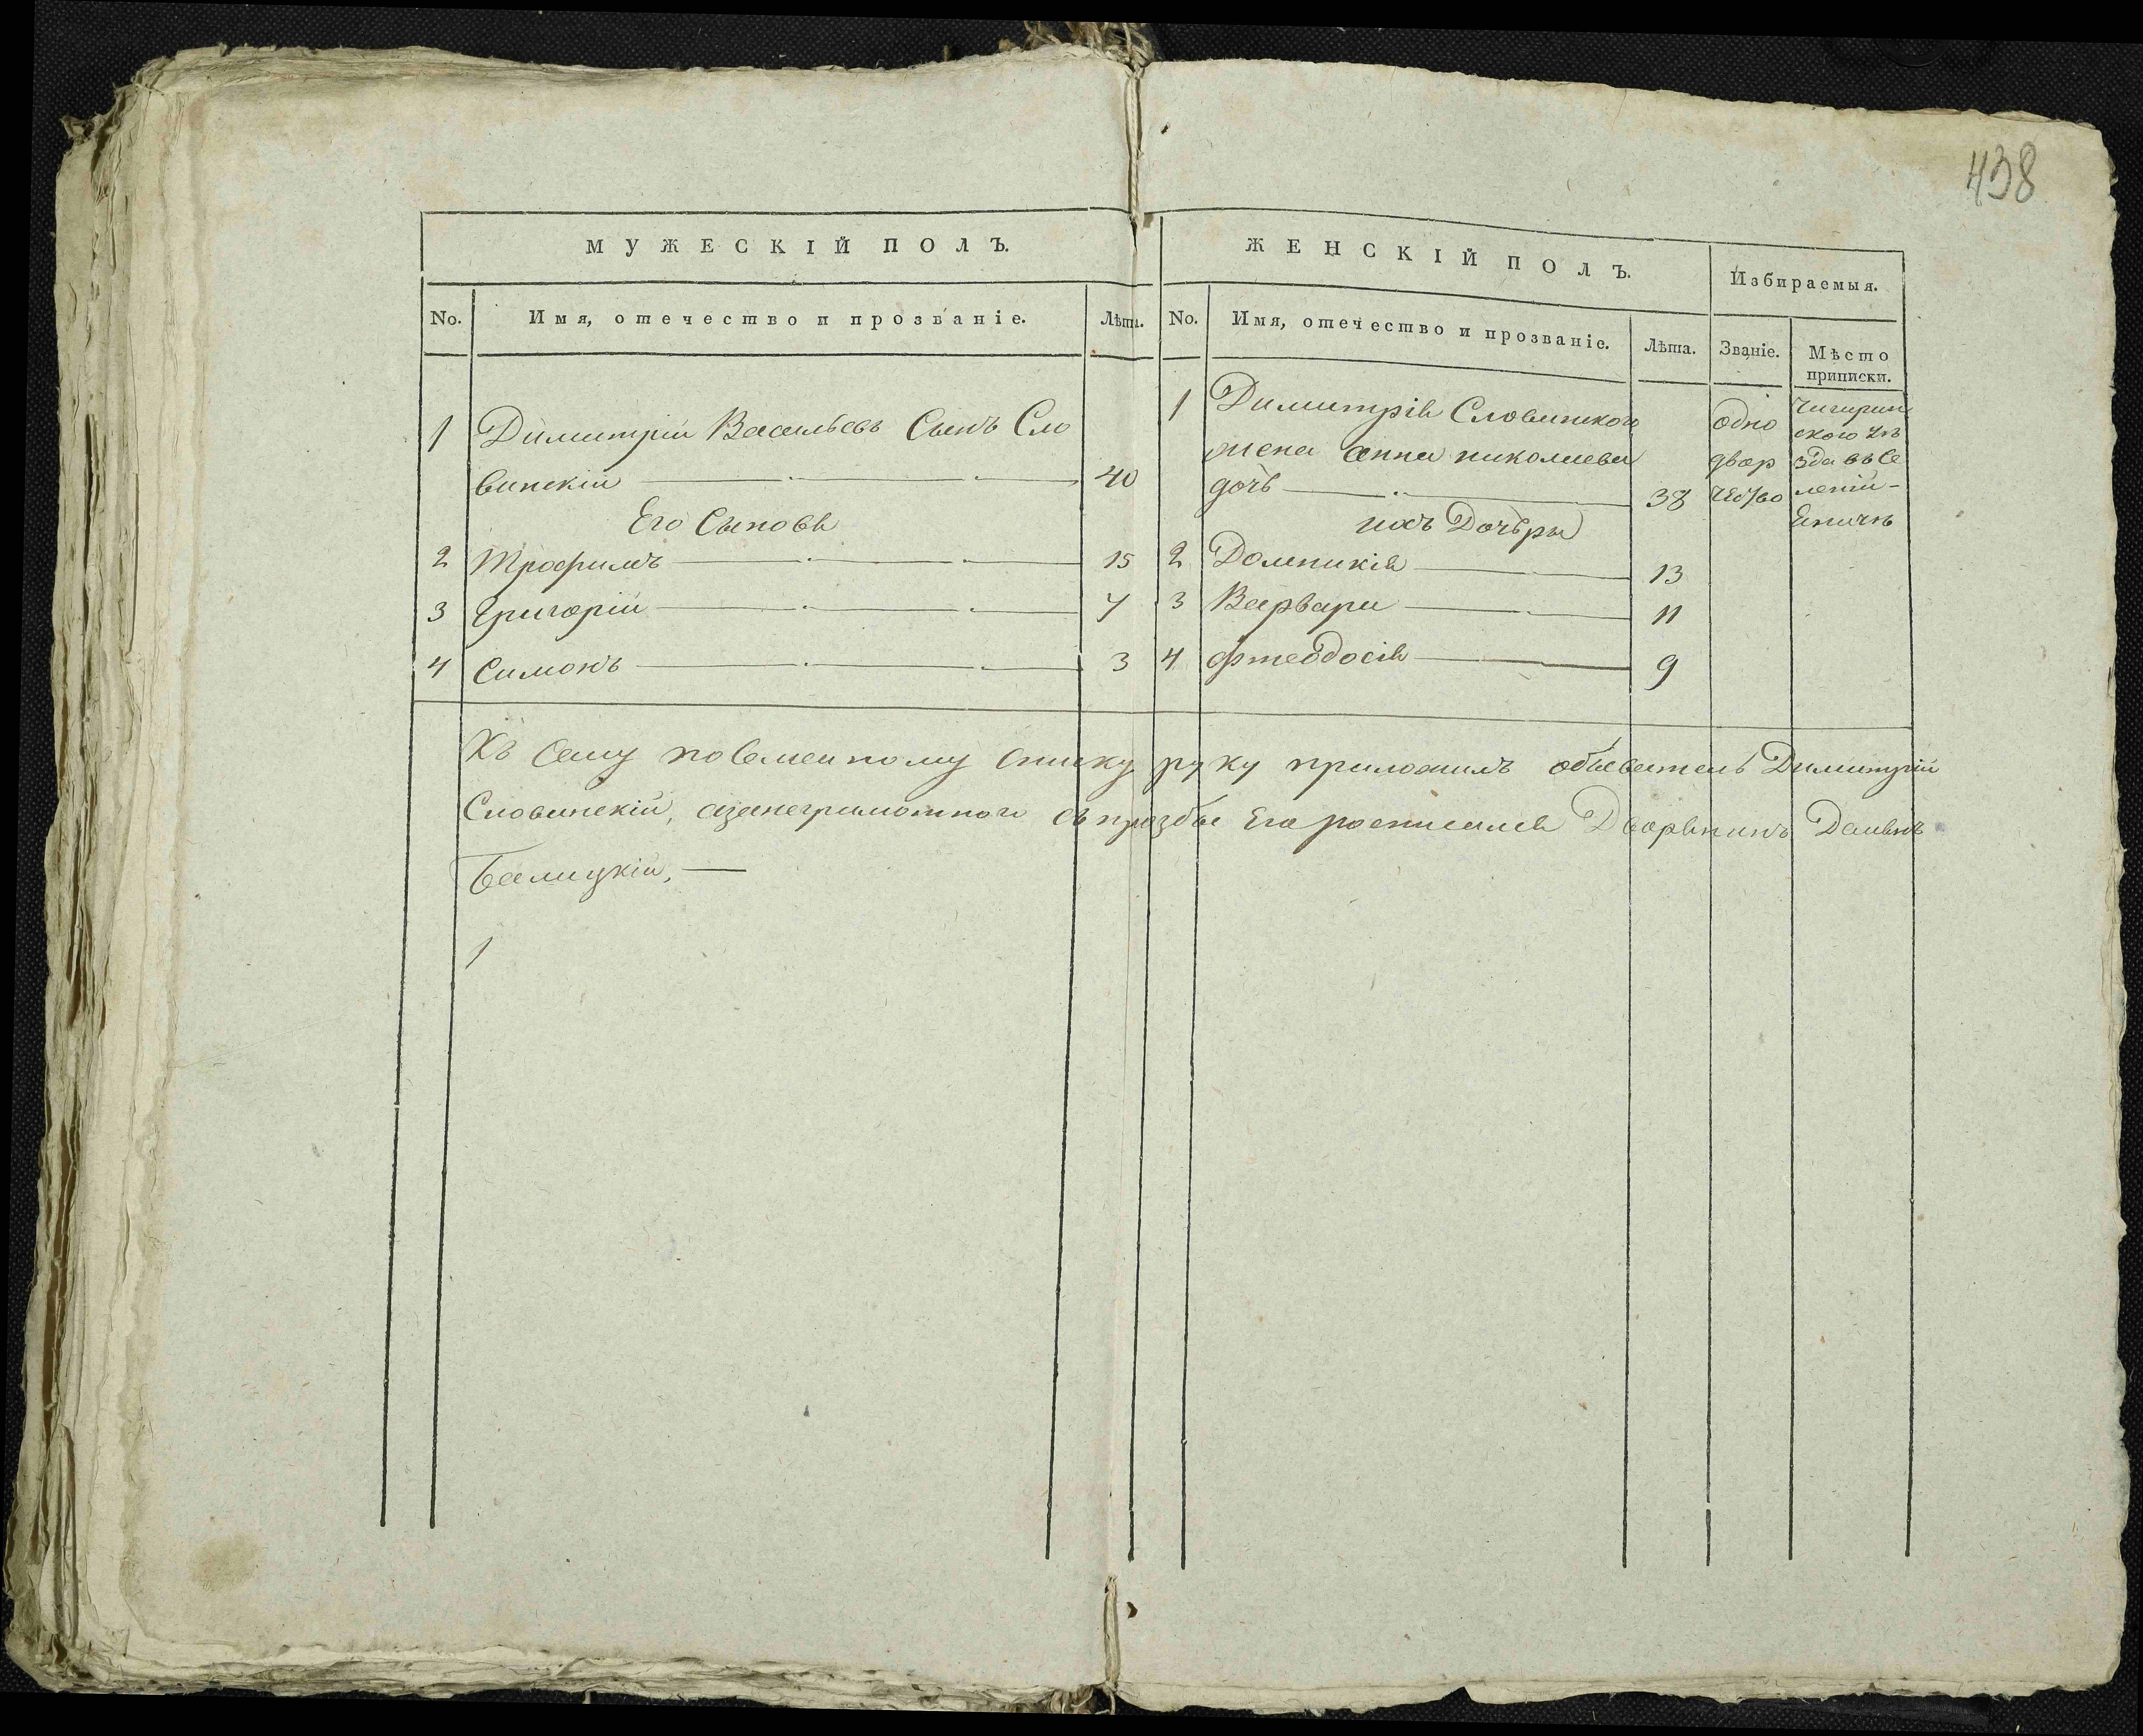 438
МУЖЕСКІЙ ПОЛЪ.
No. Имя, отечество и прозваніе. Лѣта.
1 Димитрій Васильевъ Сынъ Сло
винскій 40
Его Сыновя
2 Трофимъ 15
3 Григорій 7
4 Симонъ 3
ЖЕНСКІЙ ПОЛЪ. Избираемыя.
No. Имя, отечество и прозваніе. Лѣта. Званіе. Мѣсто
приписки.
1 Димитрія Словинского
жена анна николаева
дочь 38
ихъ Дочѣры
2 Домникія 13
3 Варвара 11
4 фтеодосія 9
одно
двор
чество
Чигирин
ского уѣ
зда въ се
леніи
Къ сему поименному списку руку приложилъ обыватель Димитрій
Словинскій, азанеграмотного съ прозбы Его росписался Дворянинъ
Балицкій,
1